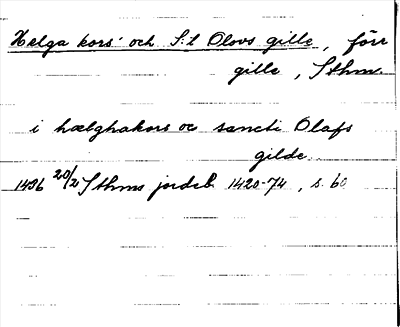 Helga kors' och S:t Olovs gille, förr
gille, Sthm.
i hælghakors oc sancti Olafs
gilde
1436 20/2 Sthms jordeb 1420-74, s. 60